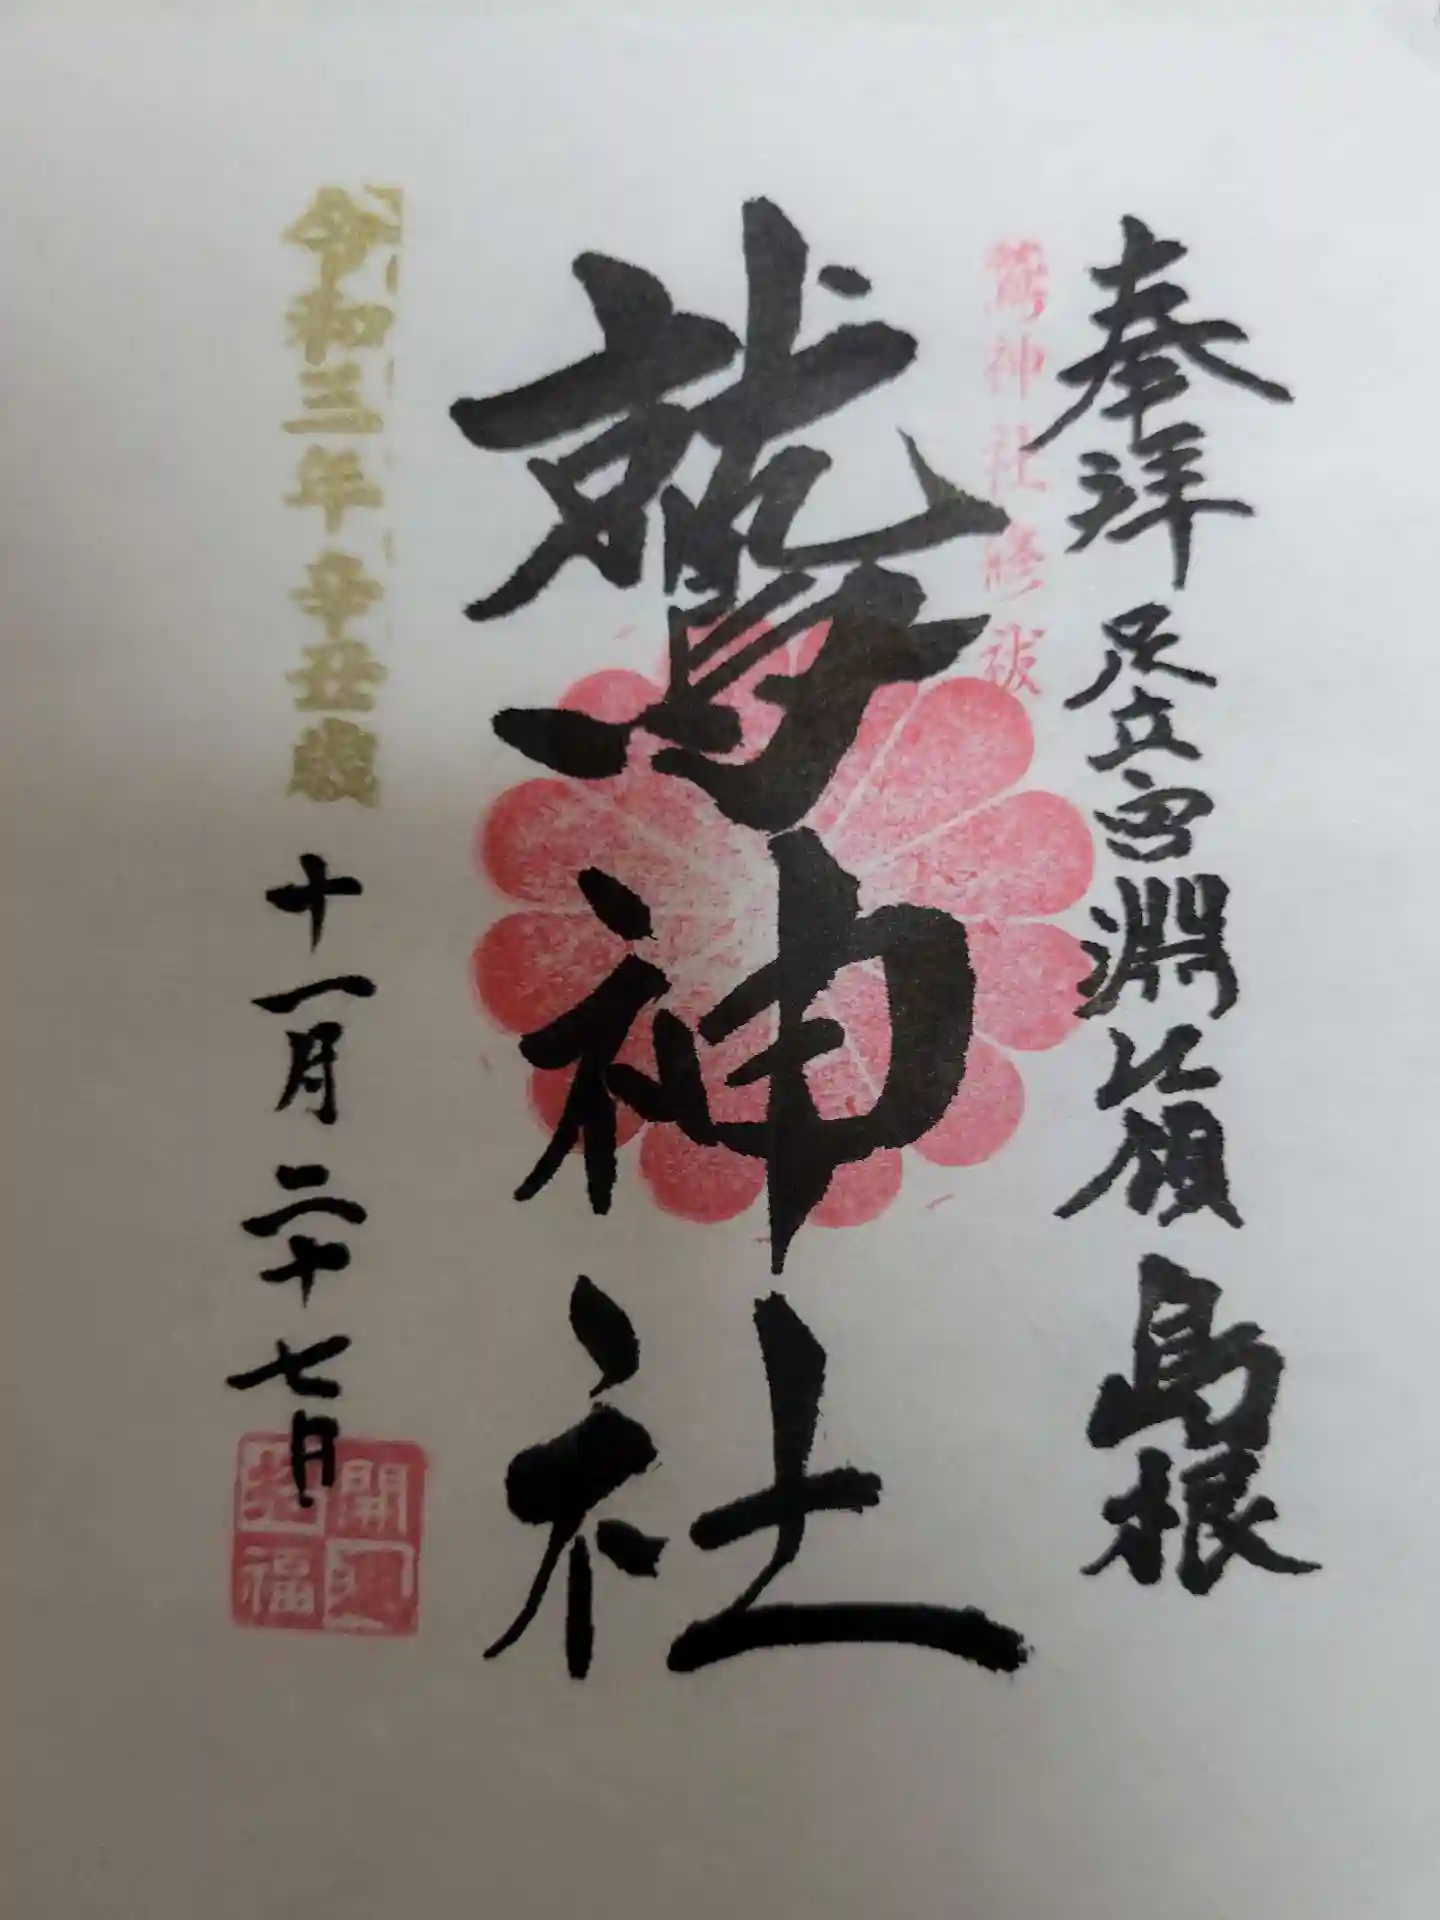 奉拝 足立宮淵江領 島根
鷲神社修祓
鷲神社
令和三年辛丑歳 十一月二十七日
開運
福